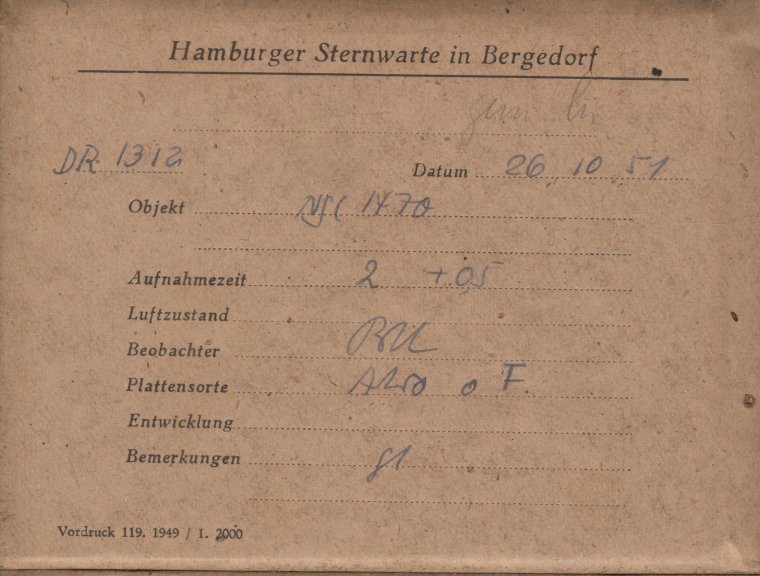 Hamburger Sternwarte in Bergedorf
DR 1312
Datum 26. 10. 51
Objekt NGC 1470
Aufnahmezeit 2 + 0,5
Luftzustand
Beobachter
Plattensorte o F.
Entwicklung
Bemerkungen
Vordruck 119. 1949 / 1. 2000